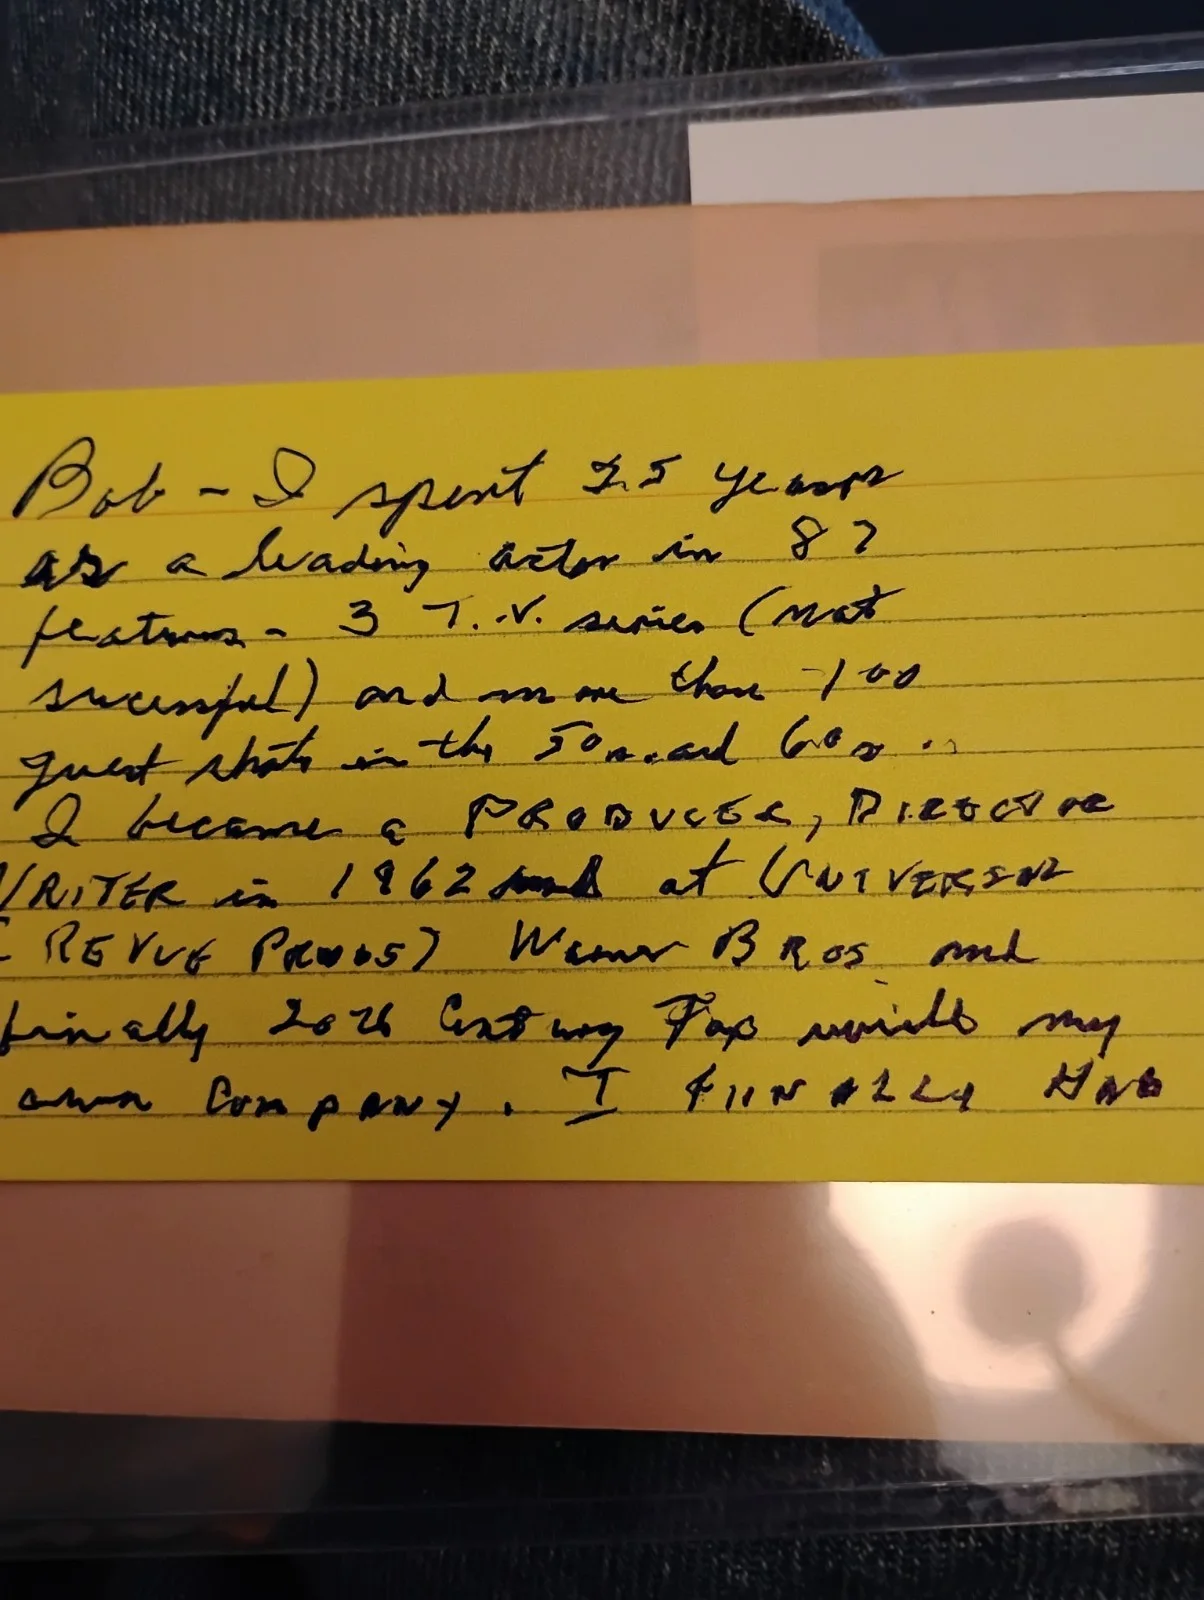 Bob - I spent 25 years
as a leading actor in 87
features - 3 T.V. series (not
sucessful) and more than 100
guest shots in the 50s and 60s ..
I became a PRODUCER, DIRECTOR
WRITER in 1962 at UNIVERSAL
(REVUE PRODS) Warner BROS and
finally 20th Century Fox with my
own COMPANY. I FIINALLY HAD